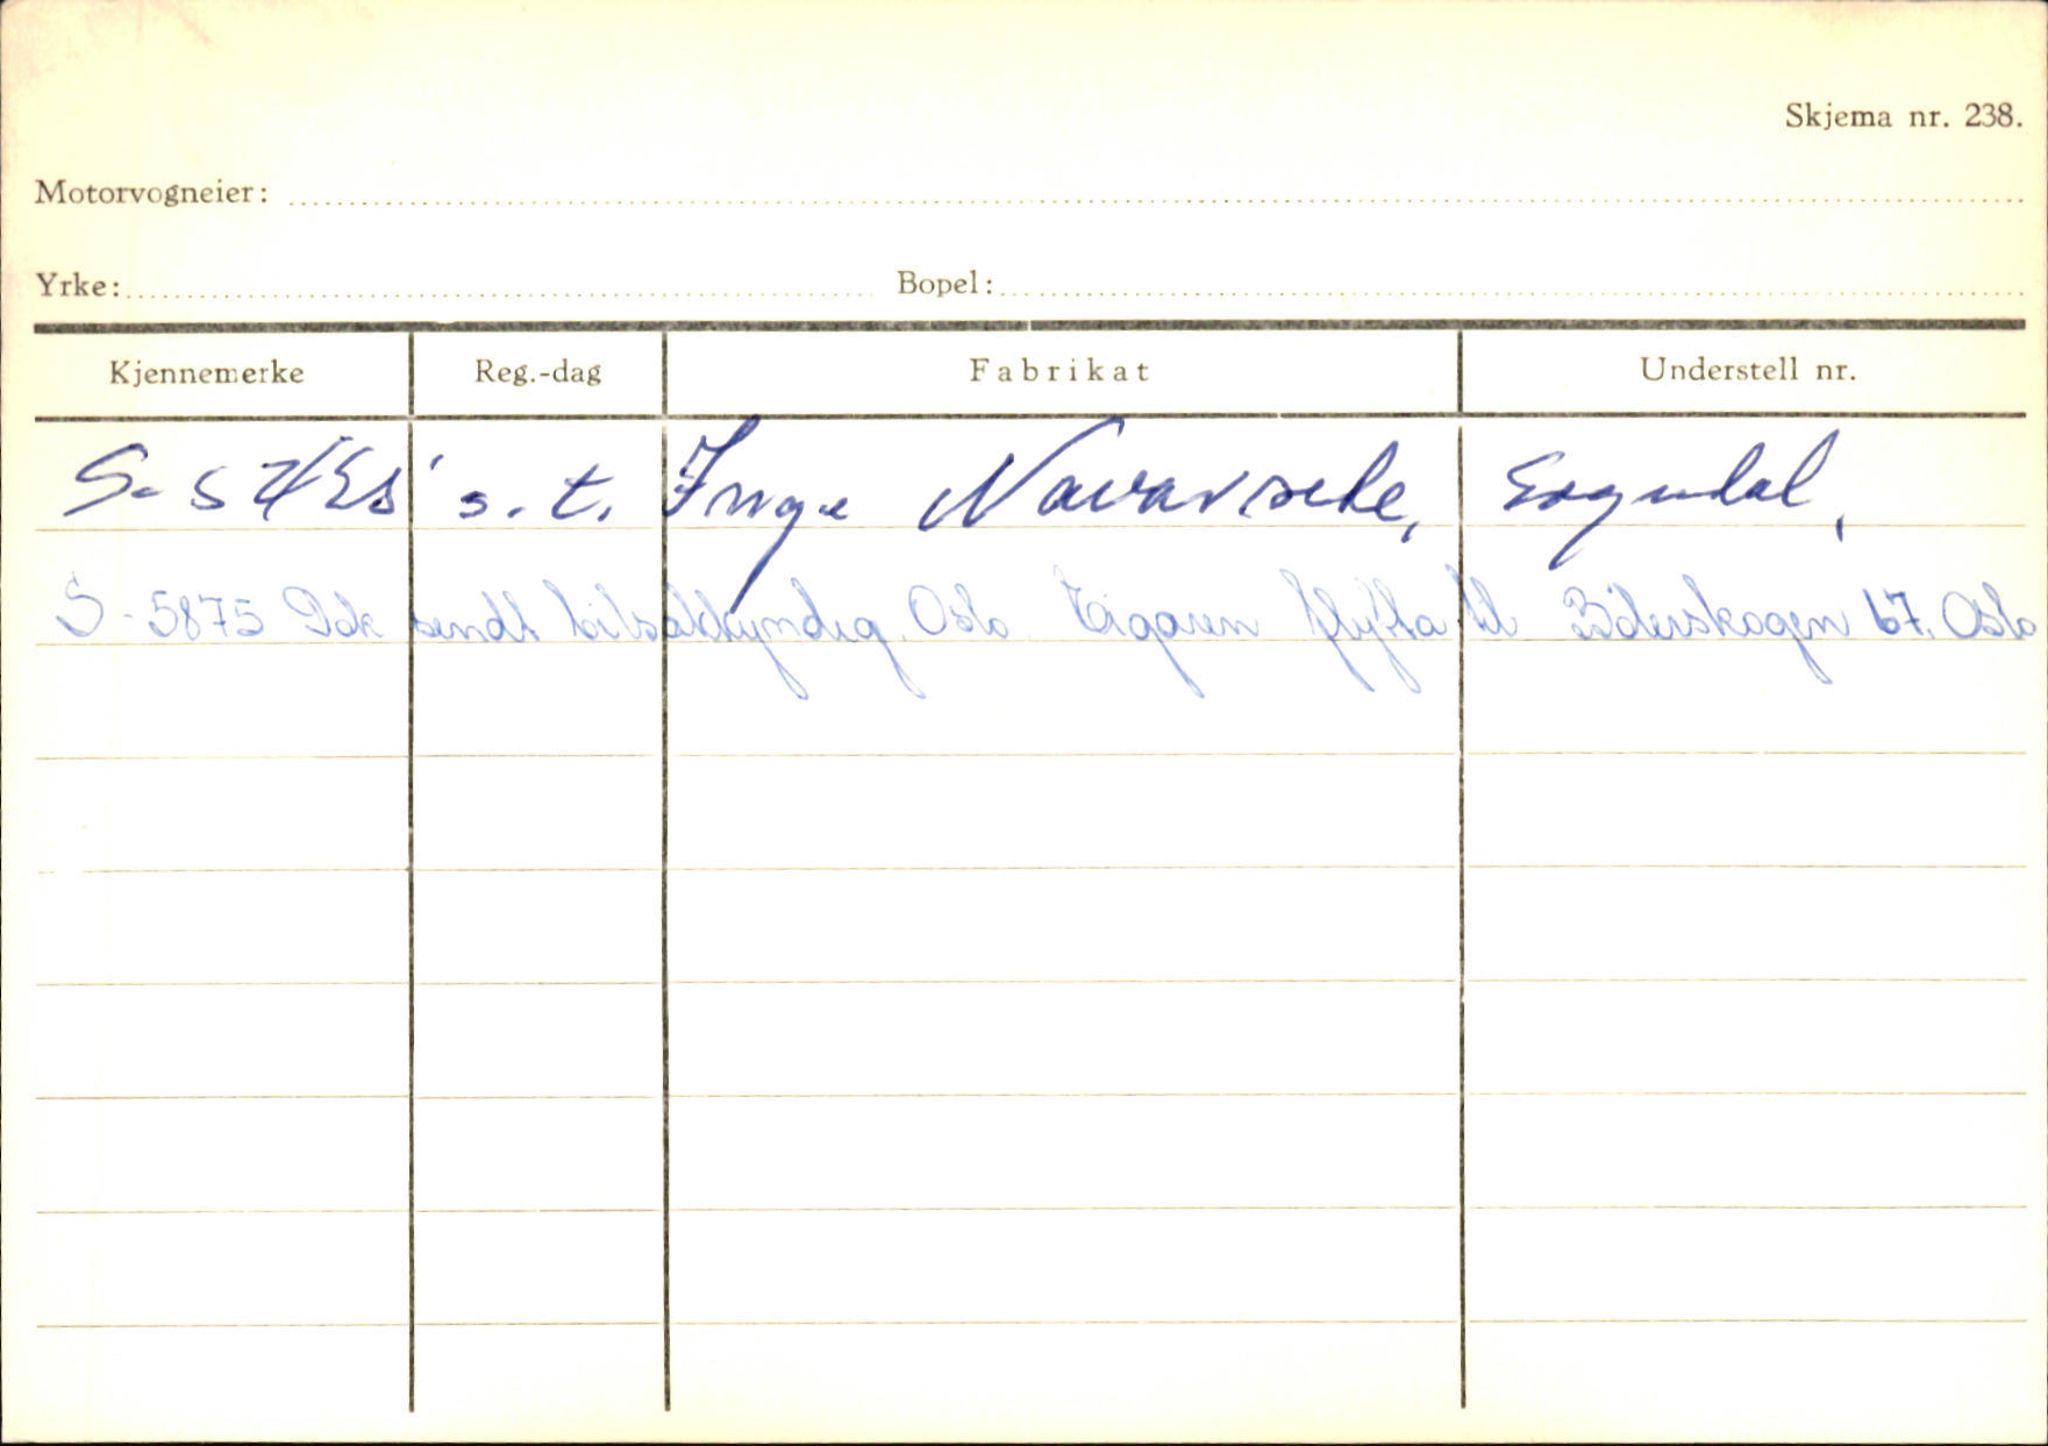 Skjema nr. 238.
Motorvogneier:
Yrke: Bopel:
Kjennemerke Reg.-dag Fabrikat Understell nr.
s.t. Inge Navarsete, Sogndal,
S-5875 Dok sendt bilsakkyndig Oslo Eigaren flytta til Bölerskogen 67, Oslo